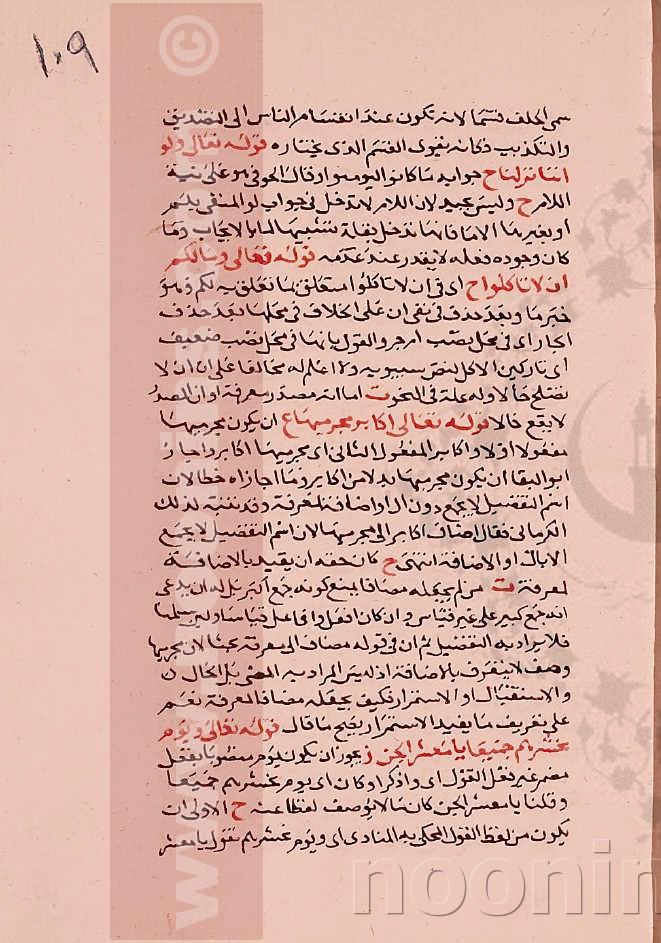 ١٠٩
سمى الحلف قسما لانه يكون عند انقسام الناس الى التصديق
والتكذيب فكانه يقوى القسم الذى يختاره قوله تعالى ولو
اننا نزلنا ح جوابه ما كانوا اليومنوا وقال الحوفى هو على نية
اللام ح وليس بجيد لان اللام لا تدخل فى جواب لو المنفى بلم
او بغيرها الا ما فانها تدخل بقلة تشبيها لما بالايجاب وما
كان وجوده فعله لا يقدر عند عدمه قوله تعالى ومالكم
ان لا تاكلوا ح اى فى ان لا تاكلوا متعلق بما تعلق به لكم وهو
خبر ما وبعد حذف فى بقى ان على الخلاف فى محلها بعد حذف
الجار اى فى محل نصب ام جر والقول بانها فى محل نصب ضعيف
اى تاركين الاكل لنص سيبويه ولا اعلم له مخالفا على ان ان لا
تصلح حالا وله علة فى النحو ت اما انه مصدر معرفة او ان المصدر
لا يقع حالا قوله تعالى اكابر مجرميها ع ان يكون مجرميها
مفعولا اولا واكابر المفعول الثانى اى مجرميها اكابر واجاز
ابو البقا ان يكون مجرميها بدلا من اكابر وما اجازاه خطا لان
اسم التفضيل لا يجمع دون ال او اضافة لمعرفة وقد تنبه لذلك
الكرمانى فقال اضاف اكابر الى مجرميها لان اسم التفضيل لا يجمع
الا بال او الاضافة انتهى ح كان حقه ان يقيد بالاضافة
لمعرفة ت من لم يجعله مضافا يمنع كونه جمع اكبر بل له ان يدعى
انه جمع كبير على غير قياس وان كان افعل وافاعل قياسا
فلا يراد به التفضيل ثم ان فى قوله مضاف الى معرفة بحثا لان مجرميها
وصف لا يتعرف بالاضافة اذ ليس المراد به المضى بل الحال
والاستقبال او الاستمرار فكيف يجعله مضافا لمعرفة نعم
على تعريف ما يفيد الاستمرار يصح ما قال قوله تعالى ويوم
نحشرهم جميعا يا معشر الجن ز يجوز ان يكون يوم منصوبا بفعل
مضمر غير فعل القول اى واذكر او كان اى يوم نحشرهم جميعا
وقلنا يا معشر الجن كان ما لا يوصف لفظاعته ح الاولى ان
يكون من لفظ القول المحكى به المنادى اى ويوم نحشرهم نقول يا معشر
www.
©
noonin